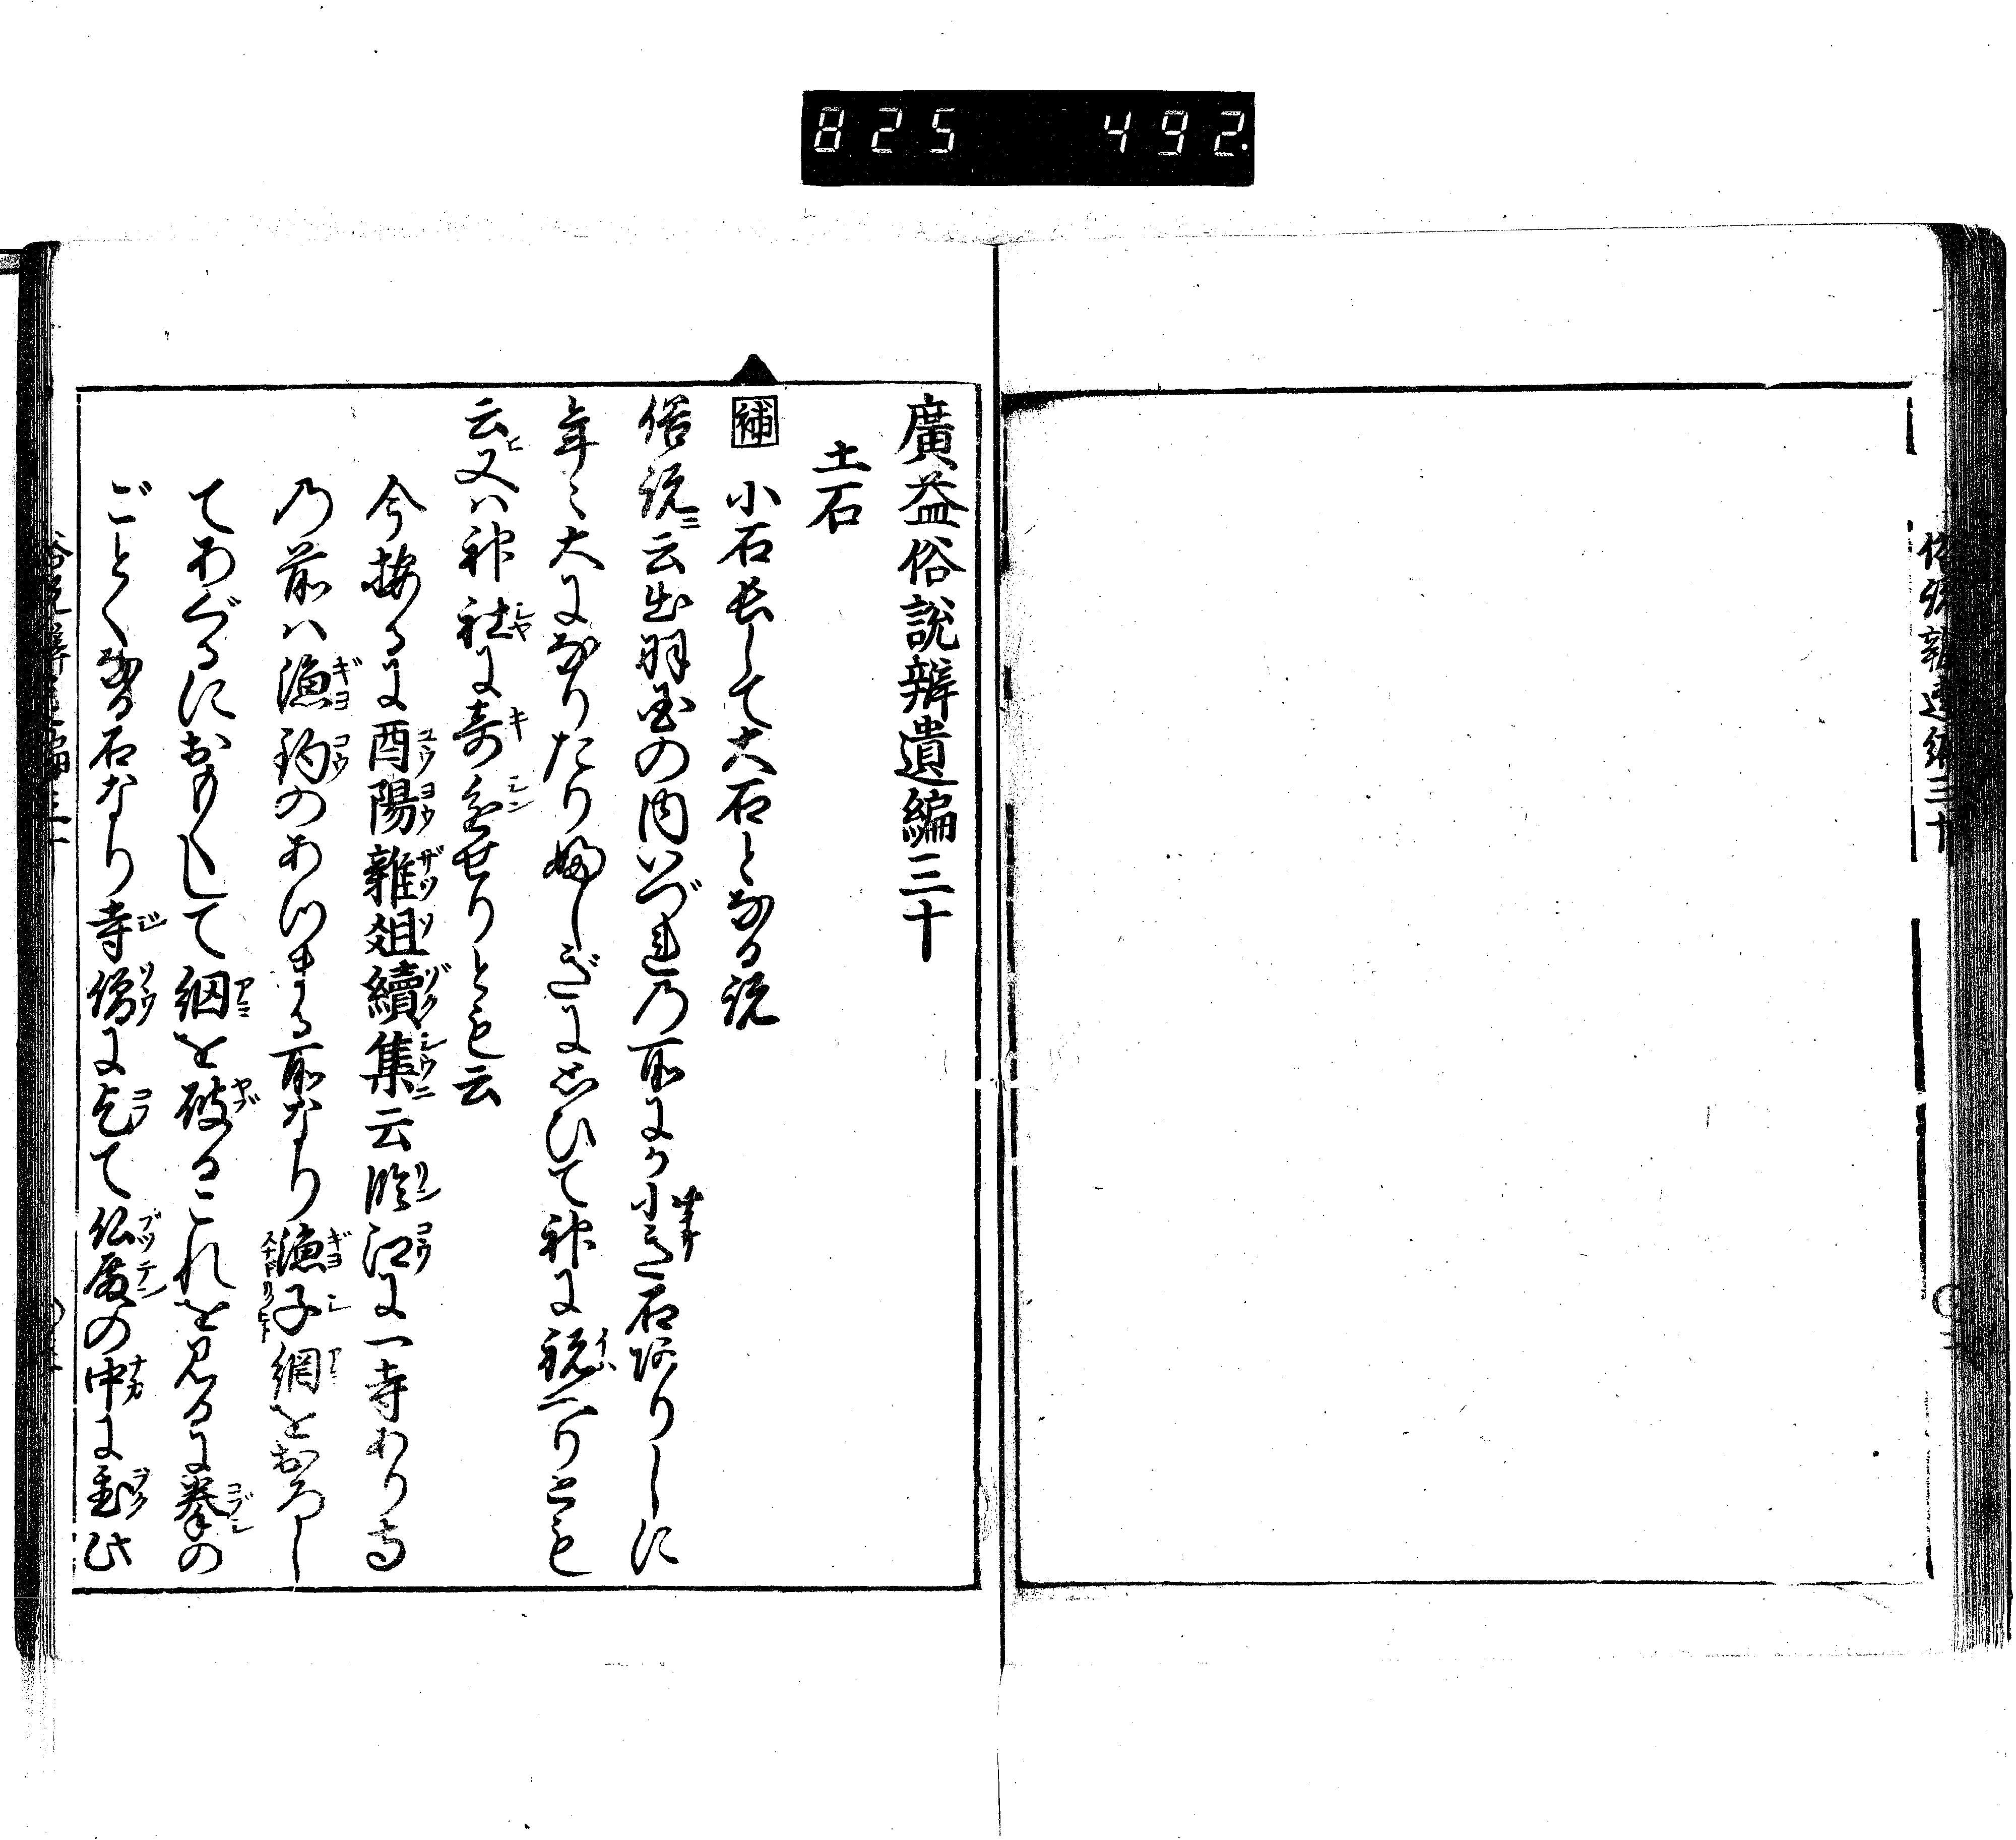 825 492
廣益俗說辨遺編三十
土石
補 小石長して大石となる説
俗説ニ云出羽国の内いづれの所にか小き石ありしに
年々大になりたりあやしぎに思ひて神に祝へりとも
云又ハ神社に寄進せりとも云
今按るに酉陽雜俎續集云臨江に一寺あり寺
の前ハ漁釣のあつまる所なり漁子網をおろし
てあぐるにおもくして網を破るこれを見るに拳の
ごとくなる石なり寺僧に乞て仏殿の中に置此
俗説辨遺編三十